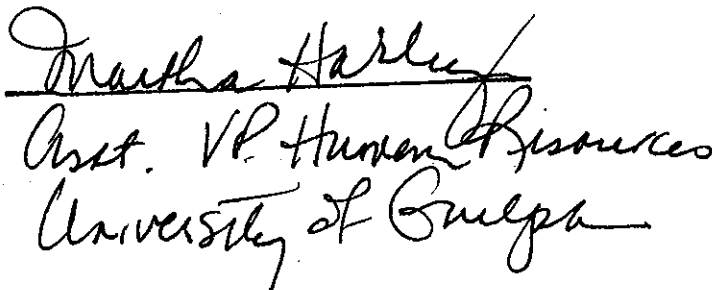 Martha Harley
Asst. VP. Human Resources
University of Guelph